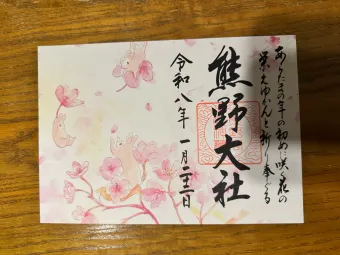 あらたまの年の初めに咲く花の
栄えゆかんと祈り奉る
熊野大社
令和八年 一月二十二日